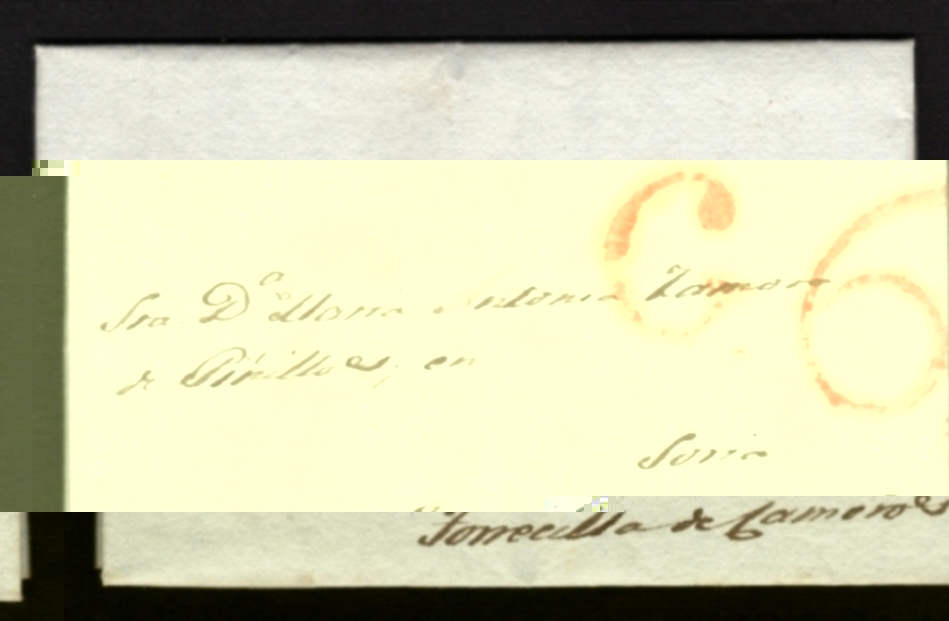 Sra Dª Maria Antonia Zamora
de Pinillos, en
Soria
Torrecilla de Cameros
6